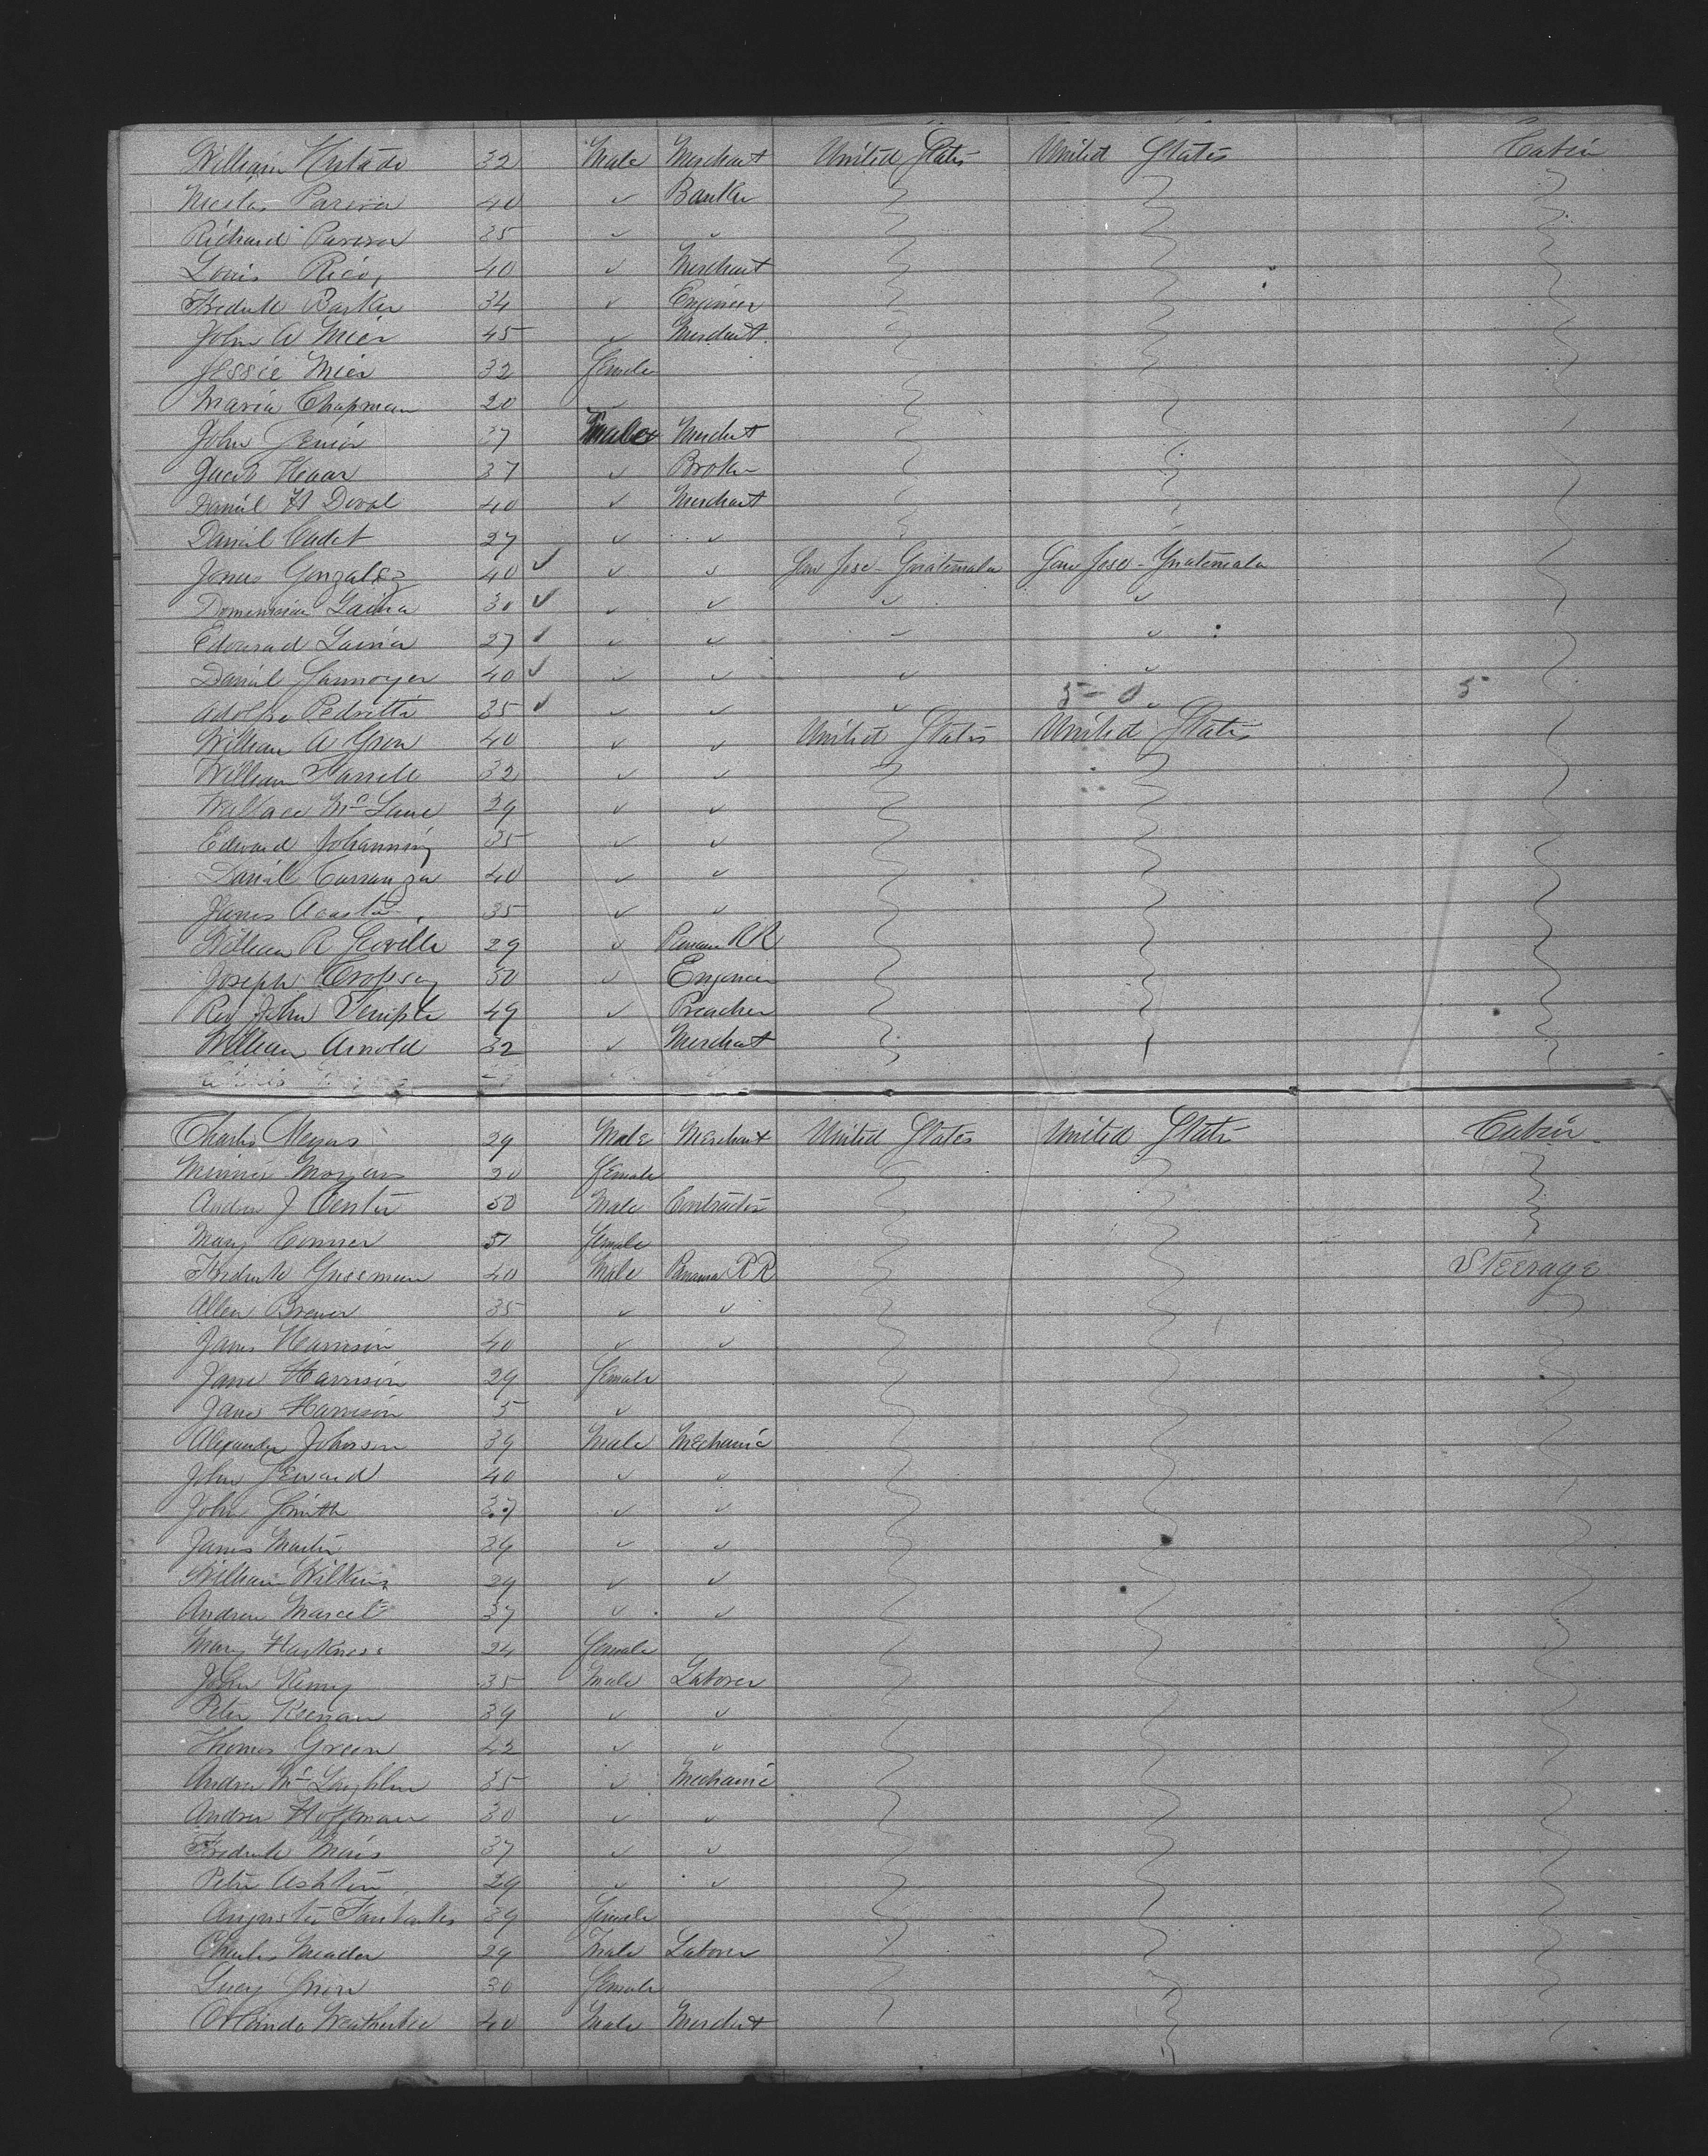 William Hurtado 32 Male Merchant United States United States Cabin
Nicolas Pareira 40 ✓ Banker
Richard Pareira 35 ✓ ✓
Louis Rico 40 ✓ Merchant
Fredrick Barker 34 ✓ Engineer
John A Meir 45 ✓ Merchant
Jessie Meir 32 Female
Maria Chapman 20 ✓
John 37 Male Merchant
Jacob Haar 37 ✓ Broker
Daniel H Doval 40 ✓ Merchant
Daniel Cadet 27 ✓ ✓
Gonzalez 40 ✓ ✓ ✓ San Jose - Guatemala San Jose - Guatemala
30 ✓ ✓ ✓ ✓ ✓
27 ✓ ✓ ✓ ✓ ✓
Daniel 40 ✓ ✓ ✓ ✓ ✓
5 - 0 5
Adolfo Pedretti 35 ✓ ✓ ✓ ✓ ✓
William A 40 ✓ ✓ United States United States
William Farrell 32 ✓ ✓
Wallace Mc Lane 39 ✓ ✓
Edward Johanning 35 ✓ ✓
Daniel Carranza 40 ✓ ✓
James Acosta 35 ✓ ✓
William R Scoville 29 ✓ Panama RR
Joseph Cropsey 50 ✓ Engineer
Rev John Temple 49 ✓ Preacher
William Arnold 32 ✓ Merchant
Charles Meyers 29 Male Merchant United States United States Cabin
Minnie 20 Female
Andrew J Center 50 Male Contractor
Mary Conner 51 Female
Fredrick 40 Male Panama RR Steerage
Allen Brewer 35 ✓ ✓
James Harrison 40 ✓ ✓
Jane Harrison 29 Female
Jane Harrison 5 ✓
Alexander Johnson 39 Male Mechanic
John Seward 40 ✓ ✓
John Smith 37 ✓ ✓
James Martin 39 ✓ ✓
William Wilkins 29 ✓ ✓
Andrew Marcel 37 ✓ ✓
Mary Harkness 24 Female
John Kenny 35 Male Laborer
Peter Keenan 39 ✓ ✓
Thomas Green 42 ✓ ✓
Andrew Mc Laughlin 35 ✓ Mechanic
Andrew Hoffman 30 ✓ ✓
Fredrick 37 ✓ ✓
Peter Ashton 29 ✓ ✓
Augusta Fairbanks 39 Female
Charles Meader 29 Male Laborer
Lucy 30 Female
Weatherbee 40 Male Merchant